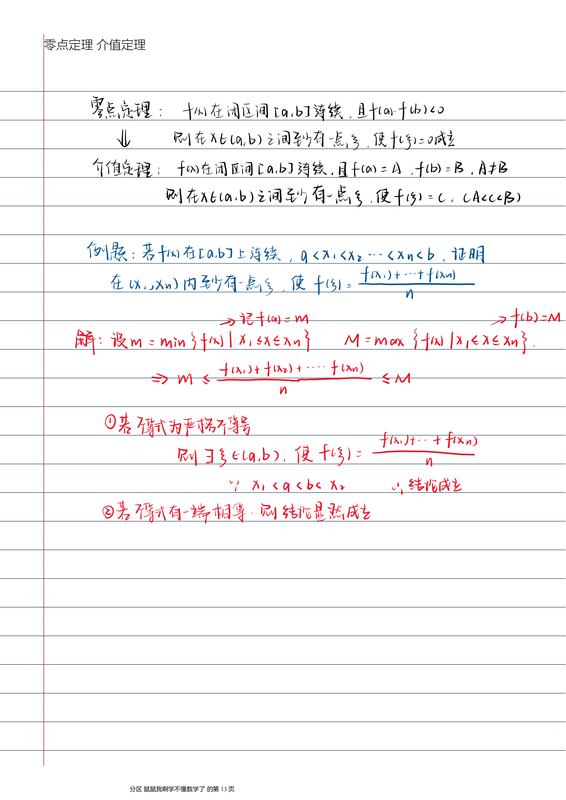 零点定理 介值定理
零点定理: f(x)在闭区间[a,b]连续,且f(a)·f(b)<0
⇓ 则在x∈(a,b)之间至少有一点ξ,使f(ξ)=0成立
介值定理: f(x)在闭区间[a,b]连续,且f(a)=A,f(b)=B,A≠B
则在x∈(a,b)之间至少有一点ξ,使f(ξ)=C,(A<C<B)
例题:若f(x)在[a,b]上连续,a<x₁<x₂…<xn<b,证明
在(x₁,xn)内至少有一点ξ,使 f(ξ)= (f(x₁)+…+f(xn))/n
→记f(a)=m →f(b)=M
解:设m=min{f(x)|x₁≤x≤xn} M=max{f(x)|x₁≤x≤xn}.
⇒ m ≤ (f(x₁)+f(x₂)+…f(xn))/n ≤ M
①若不等式为严格不等号
则∃ξ∈(a,b),使f(ξ)= (f(x₁)+…+f(xn))/n
∵ x₁<a<b<x₂ ∴结论成立
②若不等式有一端相等,则结论显然成立
分区 鼠鼠我啊学不懂数学了 的第 13 页